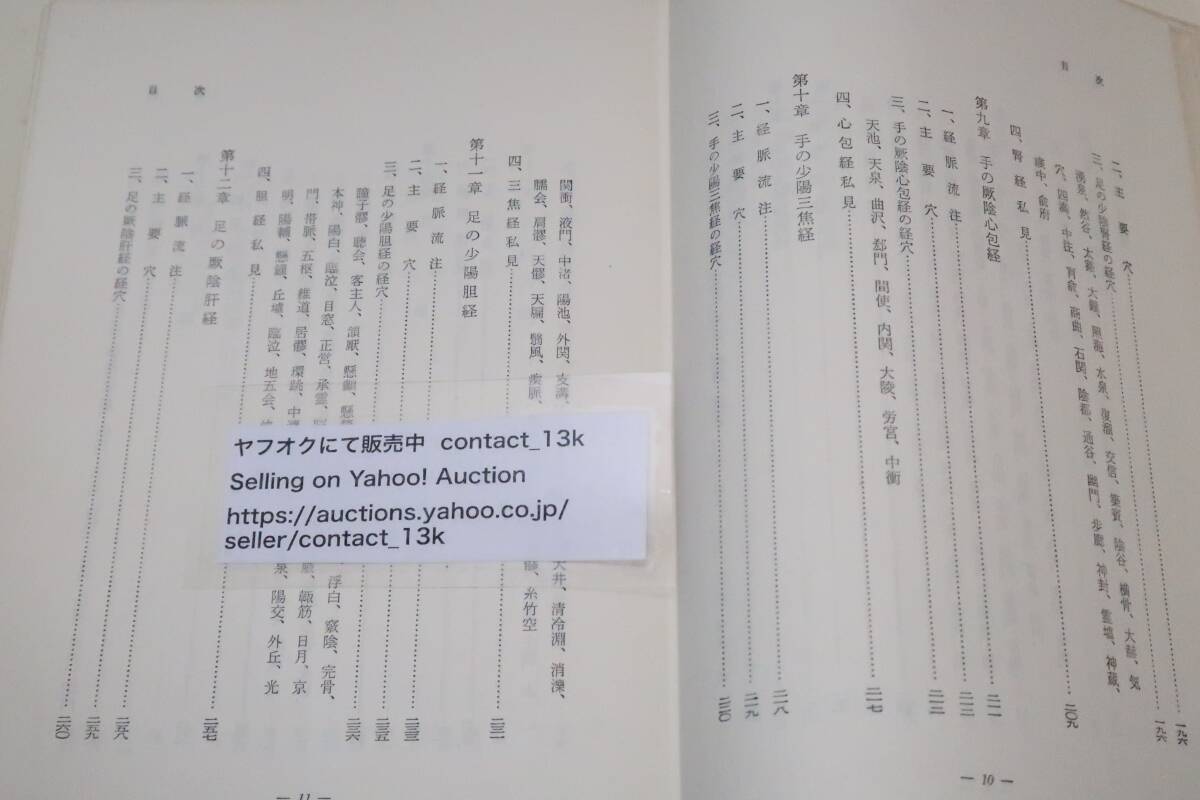 目　次
二、主　要　穴……一九六
三、足の少陰腎経の経穴……一九六
湧泉、然谷、太谿、大鐘、照海、水泉、復溜、交信、築賓、陰谷、横骨、大赫、気
穴、四満、中注、肓兪、商曲、石関、陰都、通谷、幽門、歩廊、神封、霊墟、神蔵、
彧中、兪府
四、腎　経　私　見……二〇九
第九章　手の厥陰心包経
一、経　脈　流　注……二一一
二、主　要　穴……二一二
三、手の厥陰心包経の経穴……二一二
天池、天泉、曲沢、郄門、間使、内関、大陵、労宮、中衝
四、心　包　経　私　見……二一七
第十章　手の少陽三焦経
一、経　脈　流　注……二一八
二、主　要　穴……二一九
三、手の少陽三焦経の経穴……二二〇
― 10 ―
目　次
関衝、液門、中渚、陽池、外関、支溝、
天井、清冷淵、消濼、
臑会、肩髎、天髎、天牖、翳風、瘈脈、
糸竹空
四、三　焦　経　私　見……二三一
第十一章　足の少陽胆経
一、経　脈　流　注……二三三
二、主　要　穴……二三五
三、足の少陽胆経の経穴……二三六
瞳子髎、聴会、客主人、頷厭、懸顱、
浮白、竅陰、完骨、
本神、陽白、臨泣、目窓、正営、承霊、
輒筋、日月、京
門、帯脈、五枢、維道、居髎、環跳、中
陽交、外丘、光
明、陽輔、懸鐘、丘墟、臨泣、地五会、
四、胆　経　私　見……二五七
第十二章　足の厥陰肝経
一、経　脈　流　注……二五八
二、主　要　穴……二五九
三、足の厥陰肝経の経穴……二六〇
― 11 ―
ヤフオクにて販売中 contact_13k
Selling on Yahoo! Auction
https://auctions.yahoo.co.jp/
seller/contact_13k